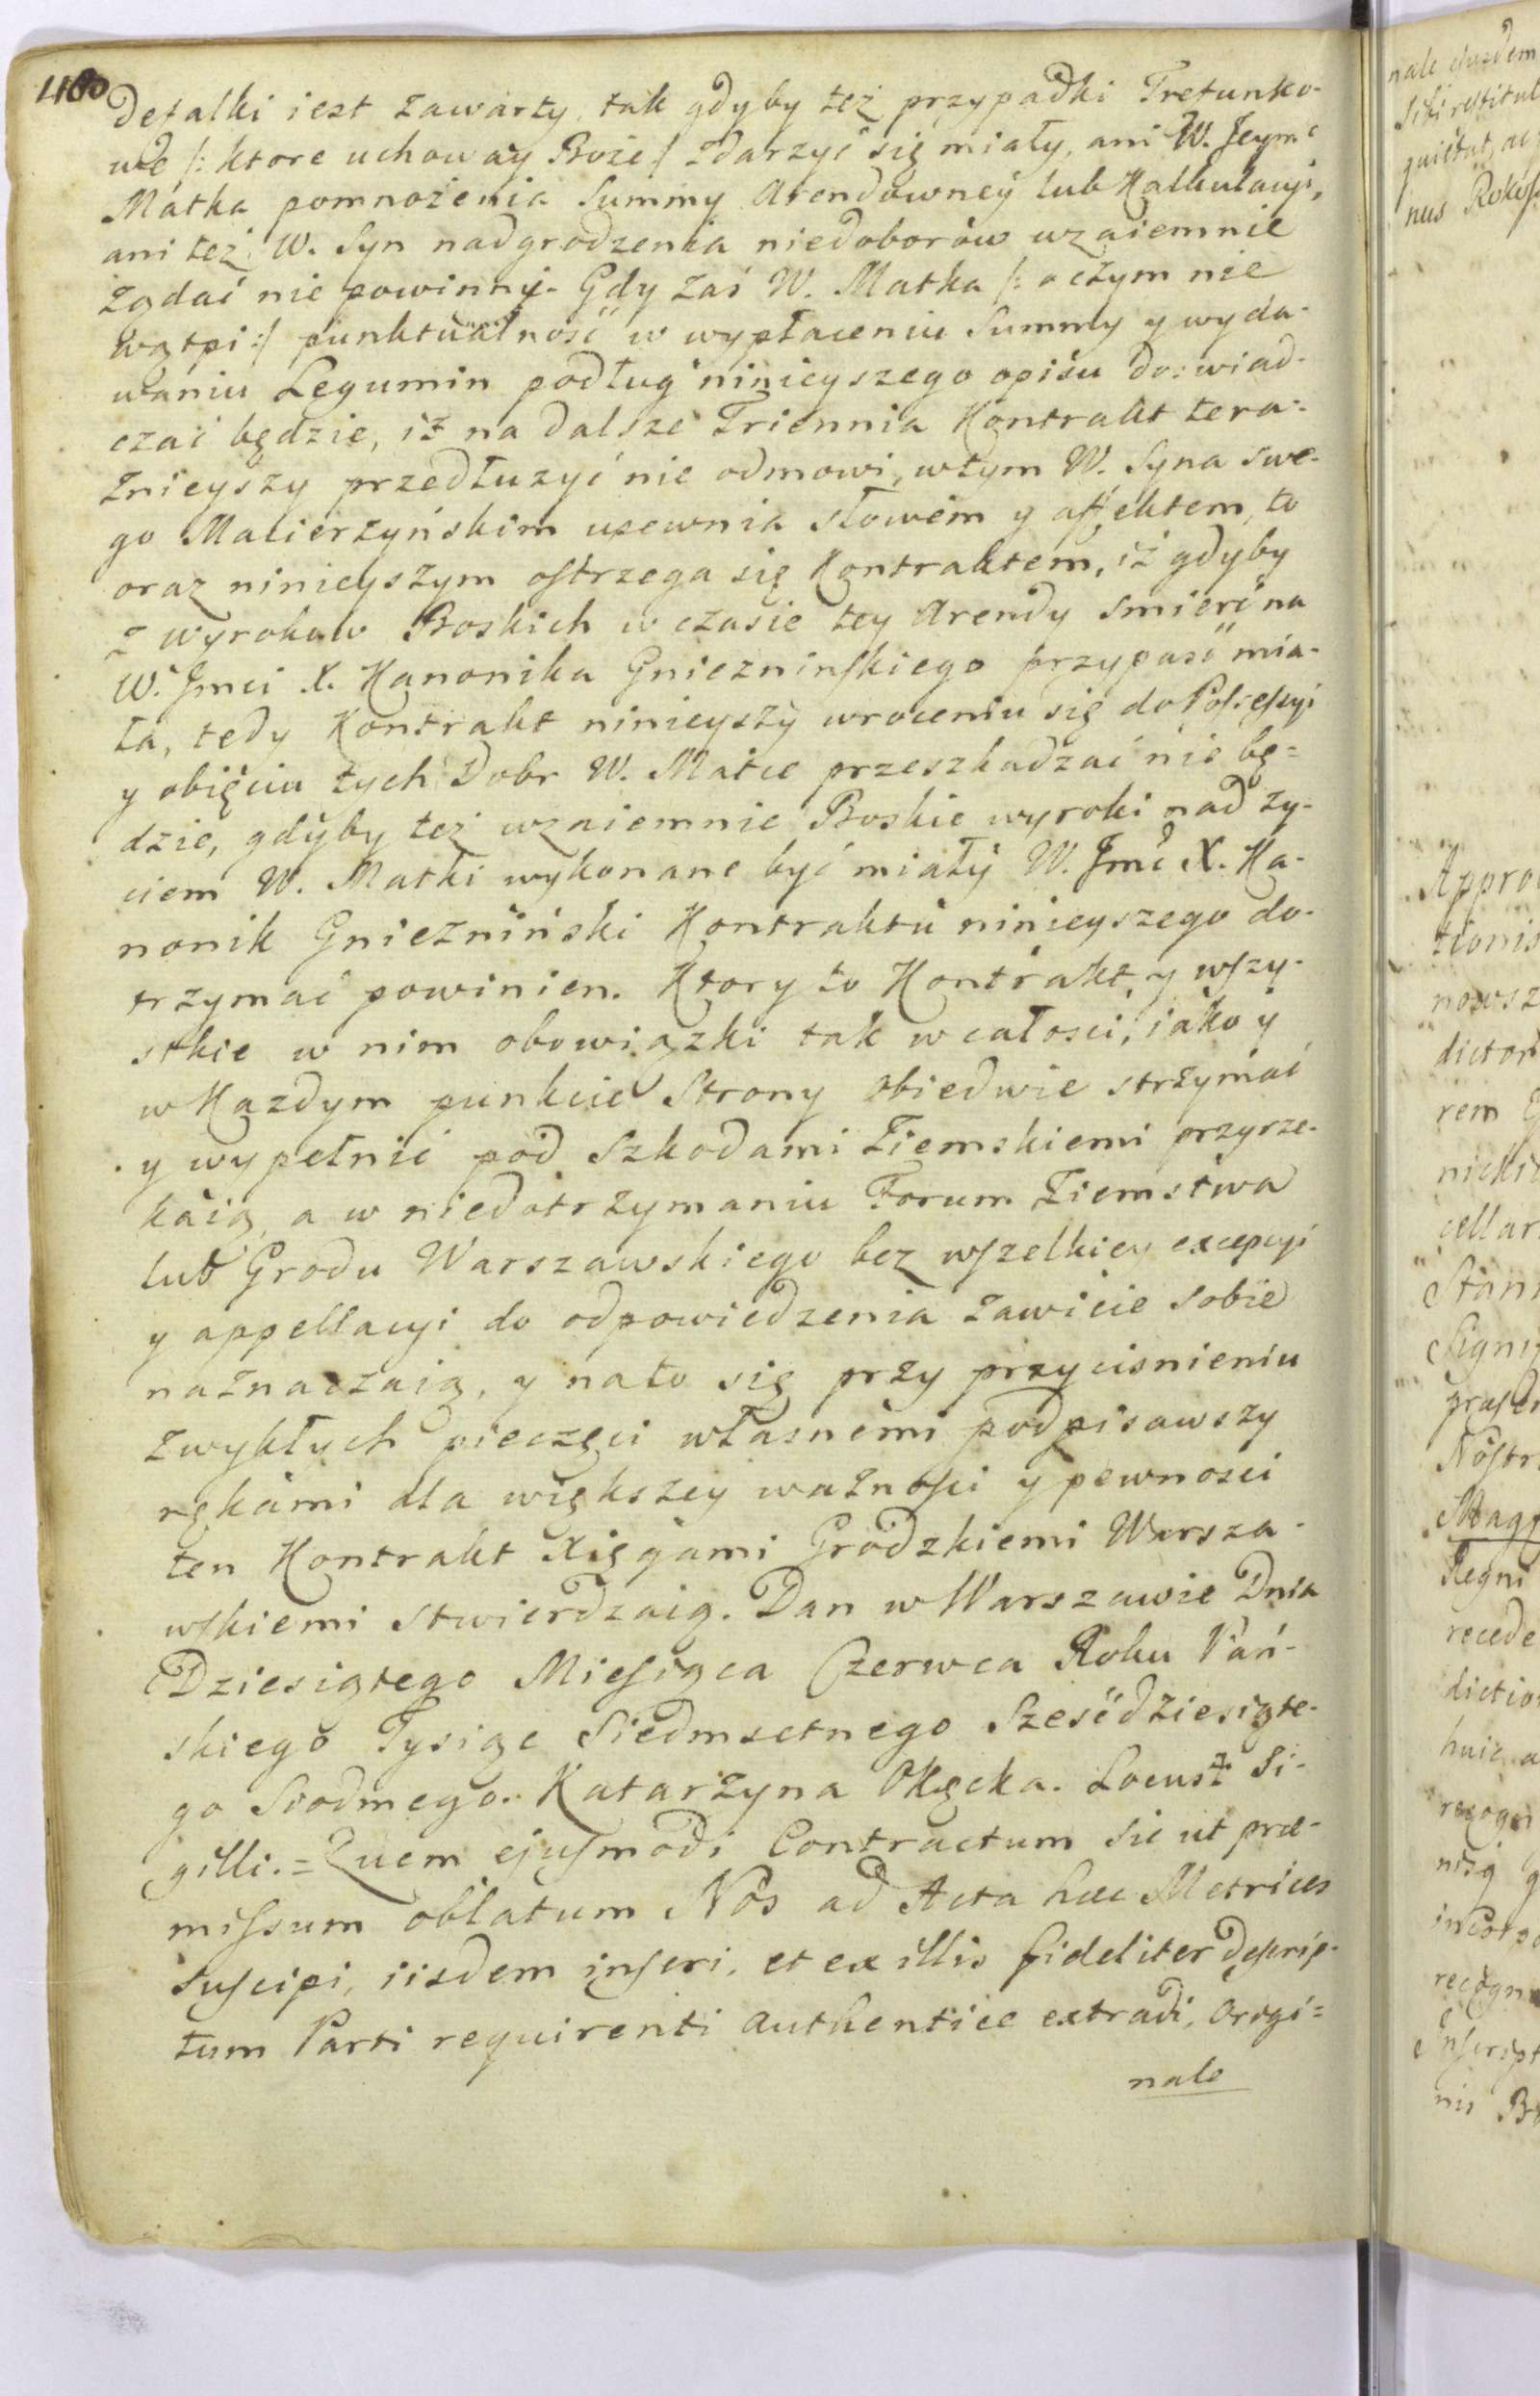 480
Defalki iest zawarty, tak gdyby też przypadki Trefunko-
we /: ktore uchoway Boże :/ zdarzyć się miały, ani W. Jeymć
Matka pomnożenia Summy Arendowney lub Kalkulacyi,
ani też W. Syn nadgrodzenia niedoborów wzaiemnie
żądać nie powinny. Gdy zaś W. Matka /: o czym nie
wątpi :/ punktualność w wypłaceniu Summy y wyda-
waniu Legumin podług ninieyszego opisu doświad-
czać będzie, iż na dalsze Triennia Kontrakt tera-
znieyszy przedłużyć nie odmowi, w tym W. Syna swe-
go Macierzyńskim upewnia słowem y affektem, to
oraz ninieyszym ostrzega się Kontraktem, iż gdyby
z wyrokow Boskich w czasie tey Arendy smierć na
W. Jmci X. Kanonika Gniezninskiego przypaść mia-
ła, tedy Kontrakt ninieyszy wroceniu się do Possessyi
y obięciu tych Dobr W. Matce przeszkadzać nie bę-
dzie, gdyby też wzaiemnie Boskie wyroki nad ży-
ciem W. Matki wykonane być miały W. Jmć X. Ka-
nonik Gniezniński Kontraktu ninieyszego do-
trzymać powinien. Ktory to Kontrakt, y wszy-
stkie w nim obowiązki tak w całości, iako y
w Kazdym punkcie Strony obiedwie strzymać
y wypełnić pod Szkodami Ziemskiemi przyrze-
kaią, a w niedotrzymaniu Forum Ziemstwa
lub Grodu Warszawskiego bez wszelkiey excepcyi
y appellacyi do odpowiedzenia zawicie sobie
naznaczaią, y na to się przy przycisnieniu
zwykłych pieczęci własnemi podpisawszy
rękami dla większey ważności y pewności
ten Kontrakt Xięgami Grodzkiemi Warsza-
wskiemi stwierdzaią. Dan w Warszawie Dnia
Dziesiątego Miesiąca Czerwca Roku Pań-
skiego Tysiąc Siedmsetnego Sześćdziesiąte-
go Siodmego. Katarzyna Okęcka. Locust Si-
gilli. = Quem ejusmodi Contractum sic ut præ-
missum oblatum Nos ad Acta hæc Metrices
suscipi, iisdem inseri, et ex illis fideliter descrip-
tum Parti requirenti authentice extradi, Origi=
nale